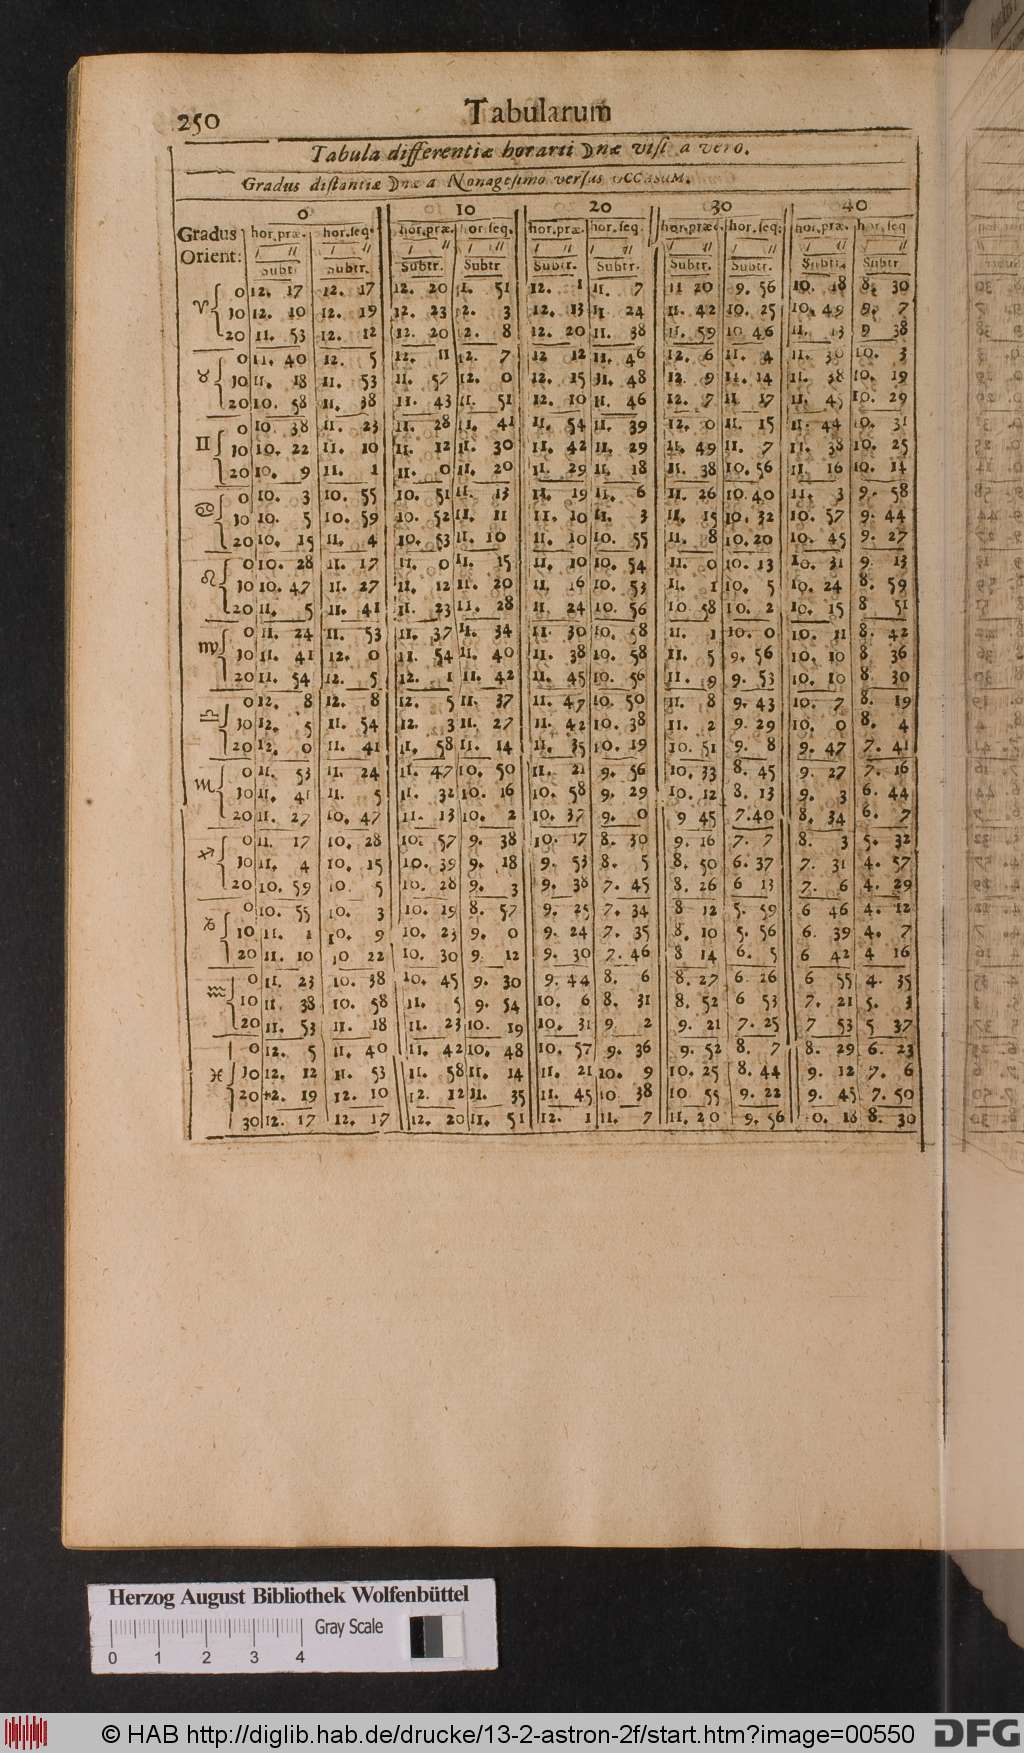 250 Tabularum
Tabula differentiæ horarii ☽næ visi a vero.
Gradus distantiæ ☽næ a Nonagesimo versus OCCASUM.
0 10 20 30 40
Gradus Orient: hor. præ. hor. seq. hor. præ. hor. seq. hor. præ. hor. seq. hor. præc. hor. seq. hor. præ. hor. seq
′ ″ ′ ″ ′ ″ ′ ″ ′ ″ ′ ″ ′ ″ ′ ″ ′ ″ ′ ″
Subtr Subtr. Subtr. Subtr Subtr. Subtr. Subtr. Subtr. Subtr. Subtr
♈ 0 12. 17 12. 17 12. 20 11. 51 12. 1 11. 7 11 20 9. 56 10. 18 8. 30
10 12. 10 12. 19 12. 23 12. 3 12. 13 11. 24 11. 42 10. 25 10. 49 9. 7
20 11. 53 12. 12 12. 20 12. 8 12. 20 11. 38 11. 59 10 46 11. 13 9 38
♉ 0 11. 40 12. 5 12. 11 12. 7 12 12 11. 46 12. 6 11. 4 11. 30 10. 3
10 11. 18 11. 53 11. 57 12. 0 12. 15 11. 48 12. 9 11. 14 11. 38 10. 19
20 10. 58 11. 38 11. 43 11. 51 12. 10 11. 46 12. 7 11 17 11. 45 10. 29
♊ 0 10. 38 11. 23 11. 28 11. 41 11. 54 11. 39 12. 0 11. 15 11. 44 10. 31
10 10. 22 11. 10 11. 12 11. 30 11. 42 11. 29 11. 49 11. 7 11. 38 10. 25
20 10. 9 11. 1 11. 0 11. 20 11. 29 11. 18 11. 38 10. 56 11. 16 10. 14
♋ 0 10. 3 10. 55 10. 51 11. 13 11. 19 11. 6 11. 26 10. 40 11. 3 9. 58
10 10. 5 10. 59 10. 52 11. 11 11. 10 11. 3 11. 15 10. 32 10. 57 9. 44
20 10. 15 11. 4 10. 53 11. 10 11. 10 10. 55 11. 8 10. 20 10. 45 9. 27
♌ 0 10. 28 11. 17 11. 0 11. 15 11. 10 10. 54 11. 0 10. 13 10. 31 9. 13
10 10. 47 11. 27 11. 12 11. 20 11. 16 10. 53 11. 1 10. 5 10. 24 8. 59
20 11. 5 11. 41 11. 23 11. 28 11 24 10. 56 10 58 10. 2 10. 15 8 51
♍ 0 11. 24 11. 53 11. 37 11. 34 11. 30 10. 58 11. 1 10. 0 10. 11 8. 42
10 11. 41 12. 0 11. 54 11. 40 11. 38 10. 58 11. 5 9. 56 10. 10 8. 36
20 11. 54 12. 5 12. 1 11. 42 11. 45 10. 56 11. 9 9. 53 10. 10 8. 30
♎ 0 12. 8 12. 8 12. 5 11. 37 11. 47 10. 50 11. 8 9. 43 10. 7 8. 19
10 12. 5 11. 54 12. 3 11. 27 11. 42 10. 38 11. 2 9. 29 10. 0 8. 4
20 12. 0 11. 41 11. 58 11. 14 11. 35 10. 19 10. 51 9. 8 9. 47 7. 41
♏ 0 11. 53 11. 24 11. 47 10. 50 11. 21 9. 56 10. 33 8. 45 9. 27 7. 16
10 11. 41 11. 5 11. 32 10. 16 10. 58 9. 29 10. 12 8. 13 9. 3 6. 44
20 11. 27 10. 47 11. 13 10. 2 10. 37 9. 0 9 45 7. 40 8. 34 6. 7
♐ 0 11. 17 10. 28 10. 57 9. 38 10. 17 8. 30 9. 16 7. 7 8. 3 5. 32
10 11. 4 10. 15 10. 39 9. 18 9. 53 8. 5 8. 50 6. 37 7. 31 4. 57
20 10. 59 10. 5 10. 28 9. 3 9. 38 7. 45 8. 26 6 13 7. 6 4. 29
♑ 0 10. 55 10. 3 10. 19 8. 57 9. 25 7. 34 8 12 5. 59 6 46 4. 12
10 11. 1 10. 9 10. 23 9. 0 9. 24 7. 35 8. 10 5. 56 6. 39 4. 7
20 11. 10 10 22 10. 30 9. 12 9. 30 7. 46 8 14 6. 5 6 42 4 16
♒ 0 11. 23 10. 38 10. 45 9. 30 9. 44 8. 6 8. 27 6 26 6 55 4. 35
10 11. 38 10. 58 11. 5 9. 54 10. 6 8. 31 8. 52 6 53 7. 21 5. 3
20 11. 53 11. 18 11. 23 10. 19 10. 31 9. 2 9. 21 7. 25 7 53 5 37
♓ 0 12. 5 11. 40 11. 42 10. 48 10. 57 9. 36 9. 52 8. 7 8. 29 6. 23
10 12. 12 11. 53 11. 58 11. 14 11. 21 10. 9 10. 25 8. 44 9. 12 7. 6
20 12. 19 12. 10 12. 12 11. 35 11. 45 10 38 10 55 9. 22 9. 45 7. 50
30 12. 17 12. 17 12. 20 11. 51 12. 1 11. 7 11. 20 9. 56 10. 18 8. 30
Herzog August Bibliothek Wolfenbüttel
Gray Scale
0 1 2 3 4
© HAB http://diglib.hab.de/drucke/13-2-astron-2f/start.htm?image=00550 DFG